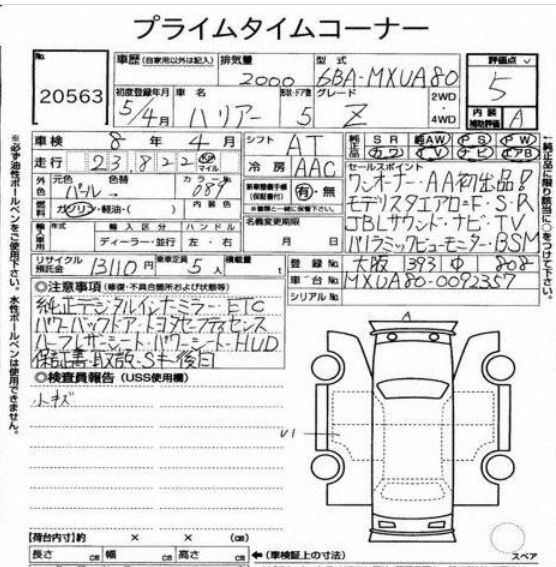 プライムタイムコーナー
No. 20563
車歴 (自家用以外は記入) 排気量 2000 型式 6BA-MXUA80 評価点 5
初度登録年月 5/4月 車名 ハリアー 形状・ドア数 5 グレード Z 2WD・4WD 内装補助評価 A
車検 8年4月 シフト AT 純正品 SR 革AW PS PW
走行 23822 km マイル 冷房 AAC カワ TV ナビ エアB
外色 元色 パール 色替 → カラーNo. 089 新車整備手帳(保証書付) 有・無
燃料 ガソリン・軽油・( ) 内装色
輸入車用 年式 輸入区分 ディーラー・並行 ハンドル 左・右 名義変更期限 月 日
セールスポイント
ワンオーナー・AA初出品!
モデリスタエアロ=F・S・R
JBLサウンド・ナビ・TV
パノラミックビューモニター・BSM
リサイクル預託金 13110円 乗車定員 5人 積載量 t 登録No. 大阪 393 808
車台No. MXUA80-0092357
シリアルNo.
◎注意事項 (修復・不具合箇所および状態等)
純正デジタルインナーミラー・ETC
パワーバックドア・トヨタセーフティセンス
ハーフレザーシート・パワーシート・HUD
保証書・取説・Sキー後日
◎検査員報告 (USS使用欄)
小キズ
A
U1
【荷台内寸】約 × × (cm)
長さ cm 幅 cm 高さ cm ←(車検証上の寸法)
スペア
※必ず油性ボールペンをご使用下さい。水性ボールペンは使用できません。
←純正品に限り該当に○をつけて下さい。